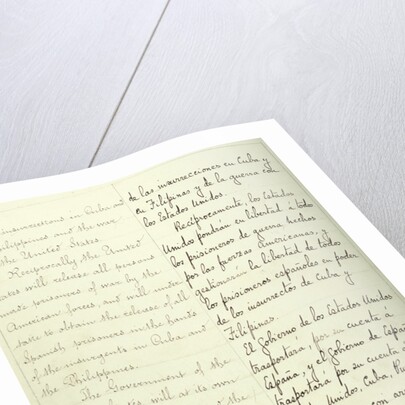 insurrections in Cuba and
Philippines and the war
the United States.
Reciprocally the United
States will release all persons
made prisoners of war by the
American forces, and will under-
take to obtain the release of all
Spanish prisoners in the hands
of the insurgents in Cuba and
the Philippines.
The Government of the
at its own
de las insurrecciones en Cuba y
en Filipinas y de la guerra con
los Estados Unidos.
Recíprocamente, los Estados
Unidos pondrán en libertad á todos
los prisioneros de guerra hechos
por las fuerzas Americanas, y
gestionarán la libertad de todos
los prisioneros españoles en poder
de los insurrectos de Cuba y
Filipinas.
El Gobierno de los Estados Unidos
trasportará, por su cuenta a
España, y el Gobierno de España
trasportará por su cuenta
Unidos, Cuba,
con